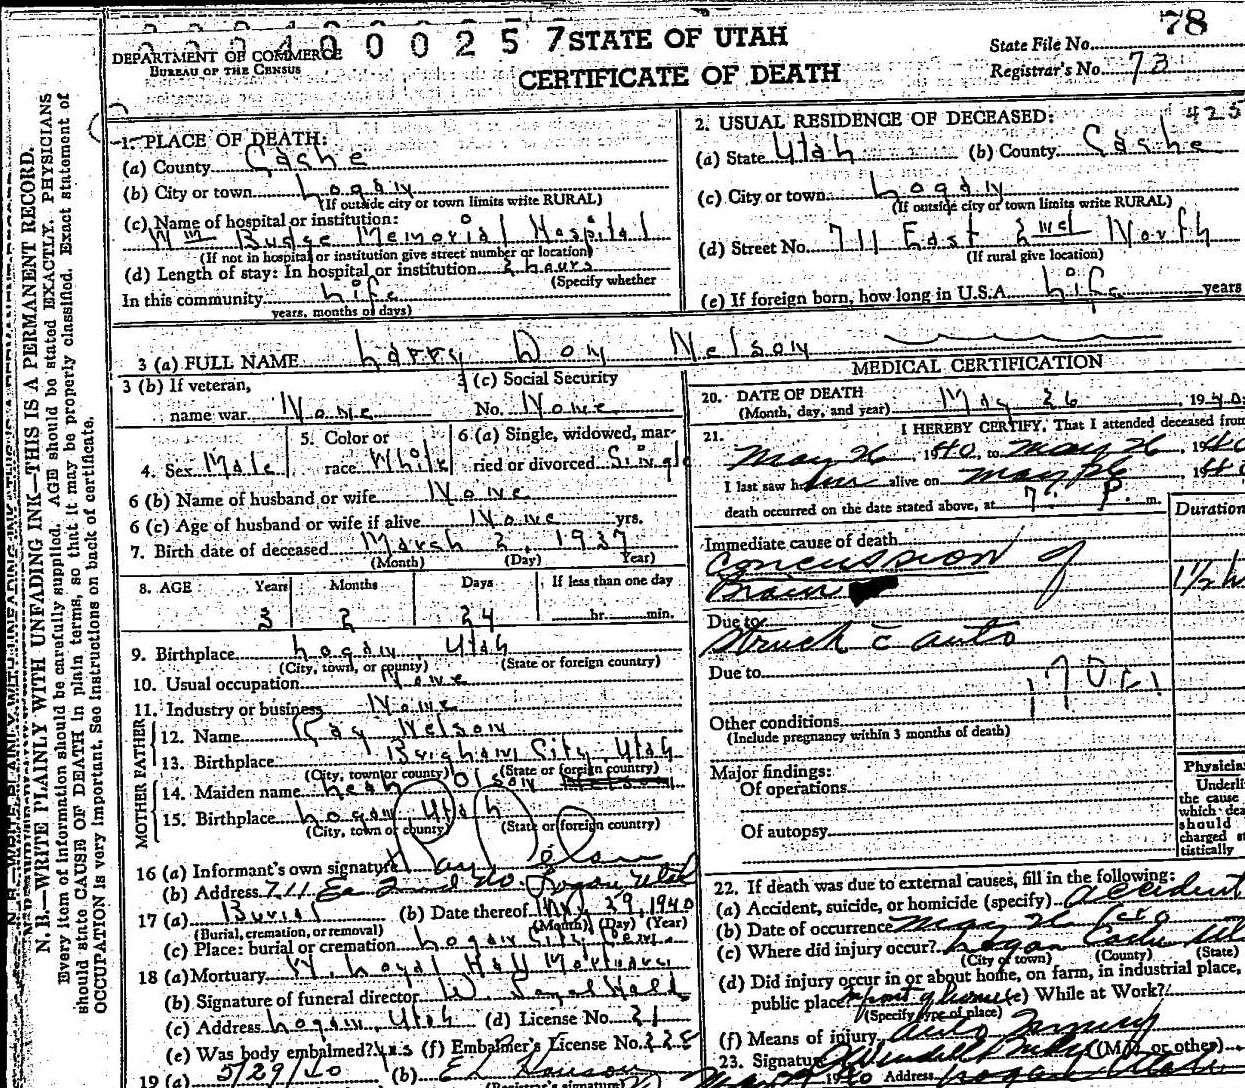 0 0 0 4 0 0 0 2 5 7 STATE OF UTAH
78
DEPARTMENT OF COMMERCE
BUREAU OF THE CENSUS
CERTIFICATE OF DEATH
State File No.
Registrar's No. 73
N. B.—WRITE PLAINLY WITH UNFADING INK—THIS IS A PERMANENT RECORD.
Every item of information should be carefully supplied. AGE should be stated EXACTLY. PHYSICIANS
should state CAUSE OF DEATH in plain terms, so that it may be properly classified. Exact statement of
OCCUPATION is very important. See instructions on back of certificate.
1. PLACE OF DEATH:
(a) County Cache
(b) City or town Logan
(If outside city or town limits write RURAL)
(c) Name of hospital or institution:
Wm Budge Memorial Hospital
(If not in hospital or institution give street number or location)
(d) Length of stay: In hospital or institution 2 hours
(Specify whether
In this community Life
years, months or days)
2. USUAL RESIDENCE OF DECEASED: 425
(a) State Utah (b) County Cache
(c) City or town Logan
(If outside city or town limits write RURAL)
(d) Street No. 711 East 2nd North
(If rural give location)
(e) If foreign born, how long in U.S.A. Life years
3 (a) FULL NAME Larry Don Nelson
3 (b) If veteran,
name war None
3 (c) Social Security
No. None
4. Sex Male
5. Color or
race White
6 (a) Single, widowed, mar-
ried or divorced Single
6 (b) Name of husband or wife None
6 (c) Age of husband or wife if alive None yrs.
7. Birth date of deceased March 2, 1937
(Month) (Day) Year)
8. AGE Years Months Days If less than one day
3 2 24 hr. min.
9. Birthplace Logan, Utah
(City, town, or county) (State or foreign country)
10. Usual occupation None
11. Industry or business None
FATHER
12. Name Ray Nelson
13. Birthplace Brigham City, Utah
(City, town or county) (State or foreign country)
MOTHER
14. Maiden name Leah Olson
15. Birthplace Logan, Utah
(City, town or county) (State or foreign country)
16 (a) Informant's own signature Ray
(b) Address 711 Ea 2nd No. Logan Utah
17 (a) Burial (b) Date thereof May 29, 1940
(Burial, cremation, or removal) (Month) (Day) (Year)
(c) Place: burial or cremation Logan City Cem.
18 (a) Mortuary W. Loyal Hall Mortuary
(b) Signature of funeral director W. Loyal Hall
(c) Address Logan, Utah (d) License No. 21
(e) Was body embalmed? yes (f) Embalmer's License No. 228
19 (a) 5/29/40 (b)
(Registrar's signature)
MEDICAL CERTIFICATION
20. DATE OF DEATH
(Month, day, and year) May 26, 1940
21. I HEREBY CERTIFY, That I attended deceased from
May 26, 1940, to May 26, 1940
I last saw him alive on May 26 1940
death occurred on the date stated above, at 7: P. m.
Duration
Immediate cause of death
Concussion of
Brain 1 1/2 h
Due to
Struck c̄ auto
Due to
170c1
Other conditions
(Include pregnancy within 3 months of death)
Major findings:
Of operations
Of autopsy
Physicia
Underli
the cause
which dea
should
charged st
tistically
22. If death was due to external causes, fill in the following:
(a) Accident, suicide, or homicide (specify) Accident
(b) Date of occurrence May 26 1940
(c) Where did injury occur? Logan Cache Ut
(City or town) (County) (State)
(d) Did injury occur in or about home, on farm, in industrial place,
public place In front of home (e) While at Work?
(Specify type of place)
(f) Means of injury Auto Injury
23. Signature Wendell Budge (M.D. or other)
1940 Address Logan Utah